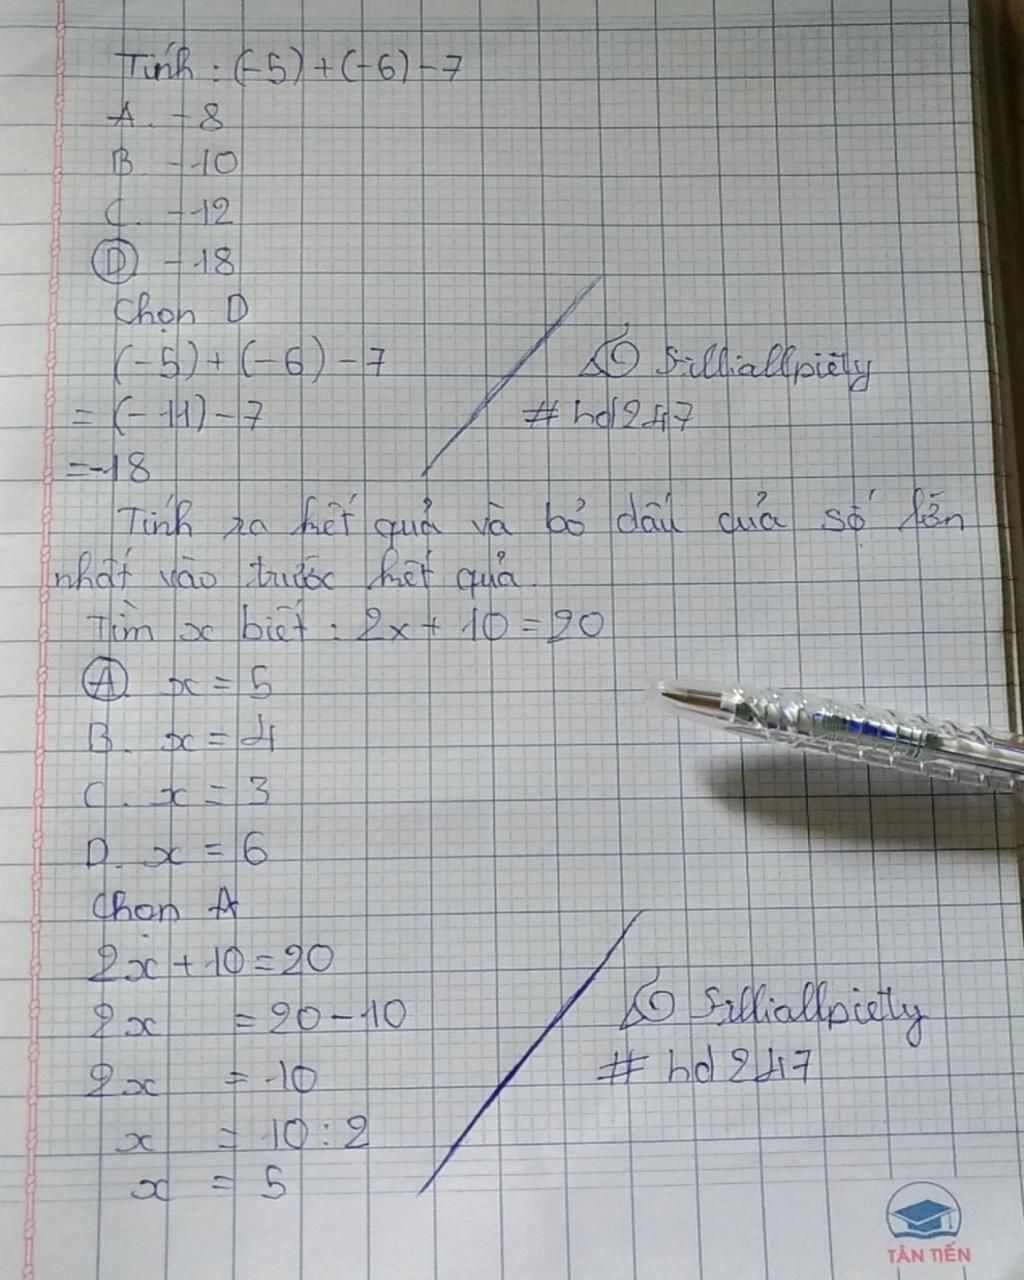 Tính : (-5) + (-6) - 7
A. -8
B. -10
C. -12
D -18
Chọn D
(-5) + (-6) - 7
= (-11) - 7
= -18
Silliallpiety
#hd247
Tính ra kết quả và bỏ dấu của số lớn
nhất vào trước kết quả.
Tìm x biết : 2x + 10 = 20
A. x = 5
B. x = 4
C. x = 3
D. x = 6
Chọn A
2x + 10 = 20
2x = 20 - 10
2x = 10
x = 10 : 2
x = 5
Silliallpiety
#hd247
TÂN TIẾN